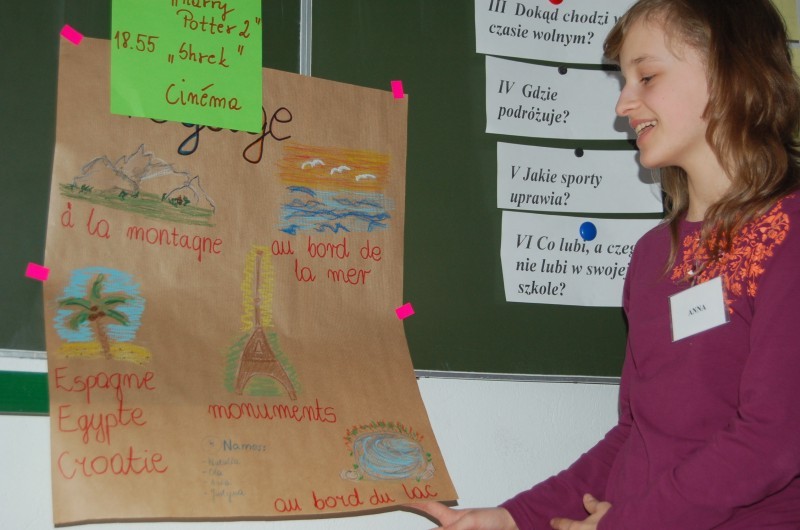 "Harry
Potter 2"
18.55 „Shrek"
Cinéma
à la montagne
au bord de
la mer
Espagne
Egypte
Croatie
monuments
au bord du lac
III Dokąd chodzi w
czasie wolnym?
IV Gdzie
podróżuje?
V Jakie sporty
uprawia?
VI Co lubi, a czeg
nie lubi w swojej
szkole?
ANNA